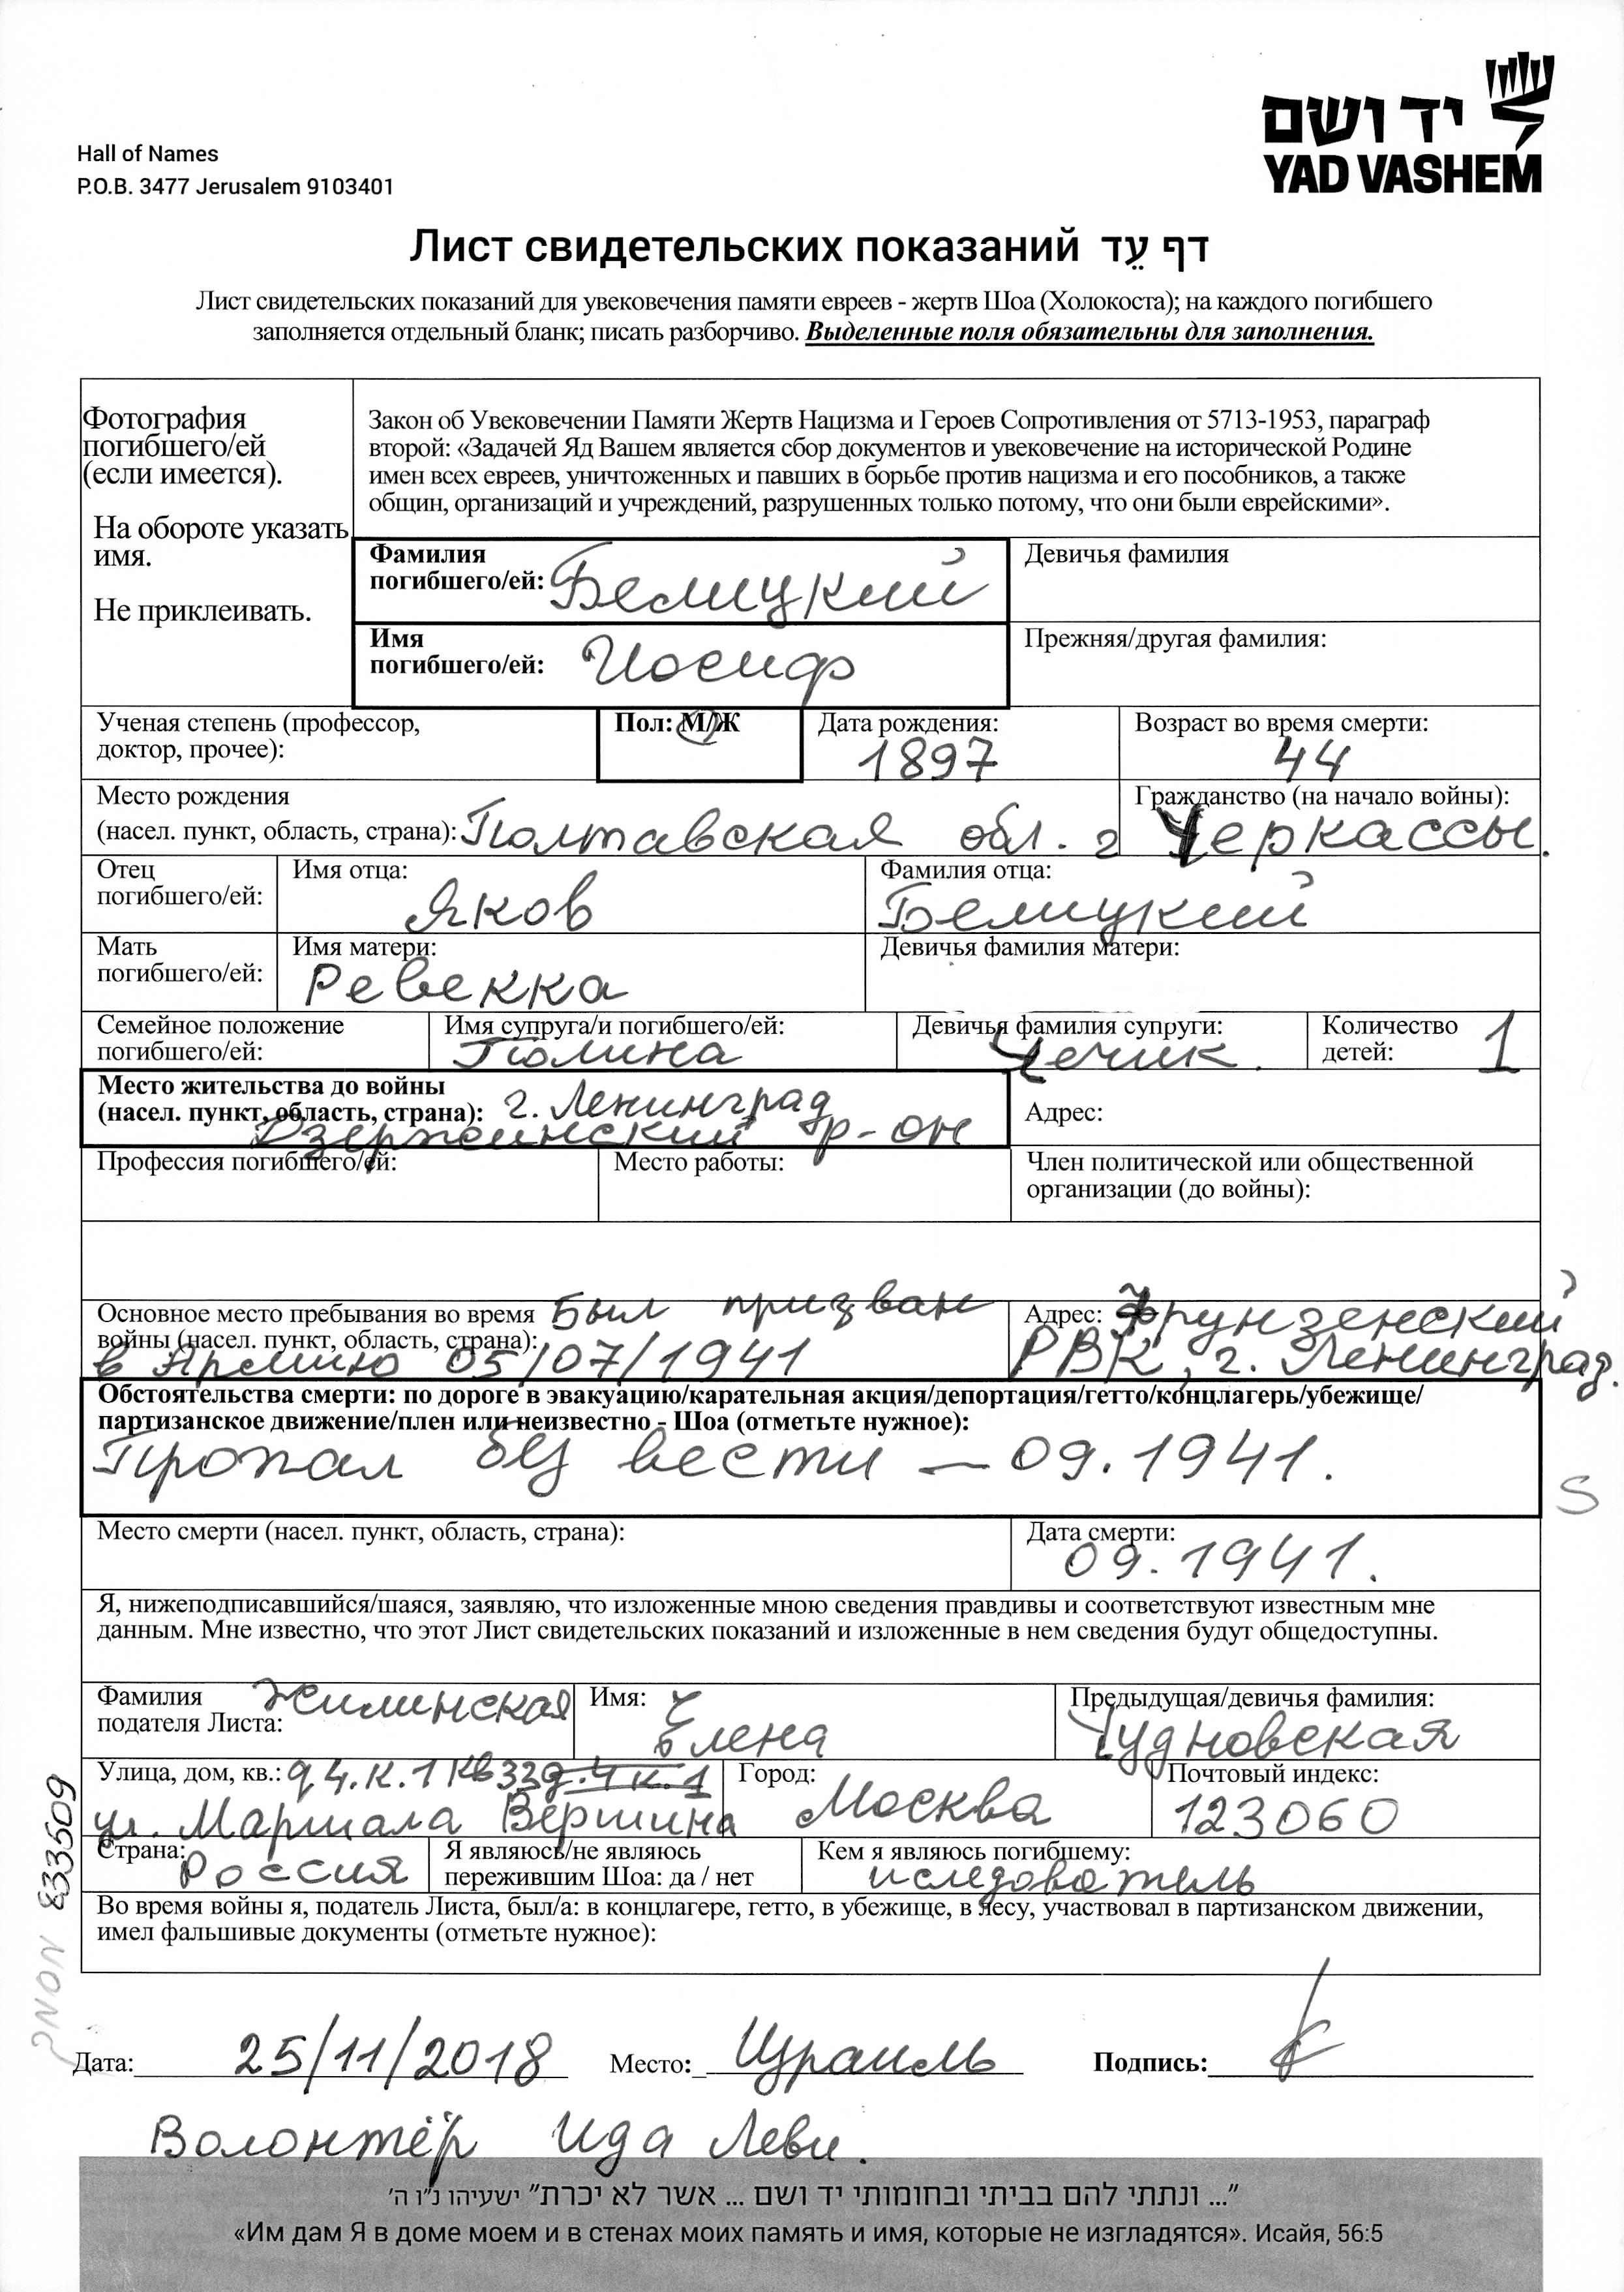 יד ושם
YAD VASHEM
Hall of Names
P.O.B. 3477 Jerusalem 9103401
Лист свидетельских показаний דף עֵד
Лист свидетельских показаний для увековечения памяти евреев - жертв Шоа (Холокоста); на каждого погибшего
заполняется отдельный бланк; писать разборчиво. Выделенные поля обязательны для заполнения.
Фотография
погибшего/ей
(если имеется).
На обороте указать
имя.
Не приклеивать.
Закон об Увековечении Памяти Жертв Нацизма и Героев Сопротивления от 5713-1953, параграф
второй: «Задачей Яд Вашем является сбор документов и увековечение на исторической Родине
имен всех евреев, уничтоженных и павших в борьбе против нацизма и его пособников, а также
общин, организаций и учреждений, разрушенных только потому, что они были еврейскими».
Фамилия
погибшего/ей: Белицкий
Девичья фамилия
Имя
погибшего/ей: Иосиф
Прежняя/другая фамилия:
Ученая степень (профессор,
доктор, прочее):
Пол: М/Ж
Дата рождения:
1897
Возраст во время смерти:
44
Место рождения
(насел. пункт, область, страна): Полтавская обл. г
Гражданство (на начало войны):
Черкассы.
Отец
погибшего/ей:
Имя отца:
Яков
Фамилия отца:
Белицкий
Мать
погибшего/ей:
Имя матери:
Ревекка
Девичья фамилия матери:
Семейное положение
погибшего/ей:
Имя супруга/и погибшего/ей:
Полина
Девичья фамилия супруги:
Чечик.
Количество
детей: 1
Место жительства до войны
(насел. пункт, область, страна): г. Ленинград
Дзержинский р-он
Адрес:
Профессия погибшего/ей:
Место работы:
Член политической или общественной
организации (до войны):
Основное место пребывания во время Был призван
войны (насел. пункт, область, страна):
в Армию 05/07/1941
Адрес: Фрунзенский
РВК, г. Ленинград.
Обстоятельства смерти: по дороге в эвакуацию/карательная акция/депортация/гетто/концлагерь/убежище/
партизанское движение/плен или неизвестно - Шоа (отметьте нужное):
Пропал без вести — 09.1941.
S
Место смерти (насел. пункт, область, страна):
Дата смерти:
09.1941.
Я, нижеподписавшийся/шаяся, заявляю, что изложенные мною сведения правдивы и соответствуют известным мне
данным. Мне известно, что этот Лист свидетельских показаний и изложенные в нем сведения будут общедоступны.
Фамилия
подателя Листа: Жилинская
Имя:
Елена
Предыдущая/девичья фамилия:
Чудновская
Улица, дом, кв.: д 4. к. 1 кв 33 д. 4 к. 1
ул. Маршала Вершина
Город:
Москва
Почтовый индекс:
123060
Страна:
Россия
Я являюсь/не являюсь
пережившим Шоа: да / нет
Кем я являюсь погибшему:
иследователь
Во время войны я, податель Листа, был/а: в концлагере, гетто, в убежище, в лесу, участвовал в партизанском движении,
имел фальшивые документы (отметьте нужное):
Дата: 25/11/2018
Место: Израиль
Подпись:
Волонтёр Ида Леви.
"... ונתתי להם בביתי ובחומותי יד ושם ... אשר לא יכרת" ישעיהו נ"ו ה'
«Им дам Я в доме моем и в стенах моих память и имя, которые не изгладятся». Исайя, 56:5